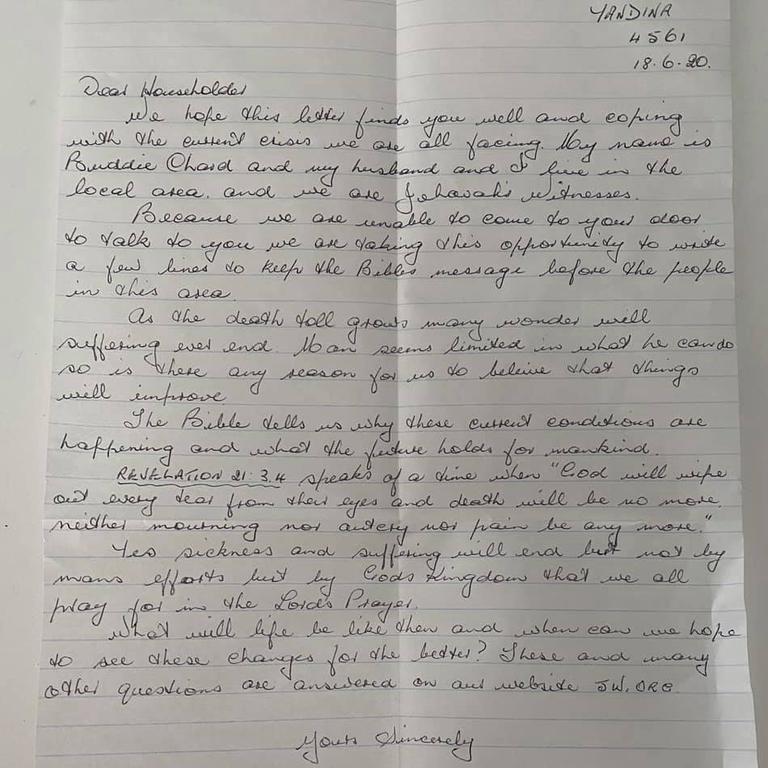 YANDINA
4561
18.6.20.
Dear Householder
We hope this letter finds you well and coping
with the current crisis we are all facing. My name is
Buddie Chard and my husband and I live in the
local area. and we are Jehovah's Witnesses.
Because we are unable to come to your door
to talk to you we are taking this opportunity to write
a few lines to keep the Bibles message before the people
in this area.
As the death toll grows many wonder will
suffering ever end. Man seems limited in what he can do
so is there any reason for us to beleive that things
will improve
The Bible tells us why these current conditions are
happening and what the future holds for mankind.
REVELATION 21:3.4 speaks of a time when "God will wipe
out every tear from their eyes and death will be no more,
neither mourning nor outcry nor pain be any more."
Yes sickness and suffering will end but not by
mans efforts but by Gods Kingdom that we all
pray for in the Lords Prayer.
What will life be like then and when can we hope
to see these changes for the better? These and many
other questions are answered on our website JW.ORG
Yours Sincerely